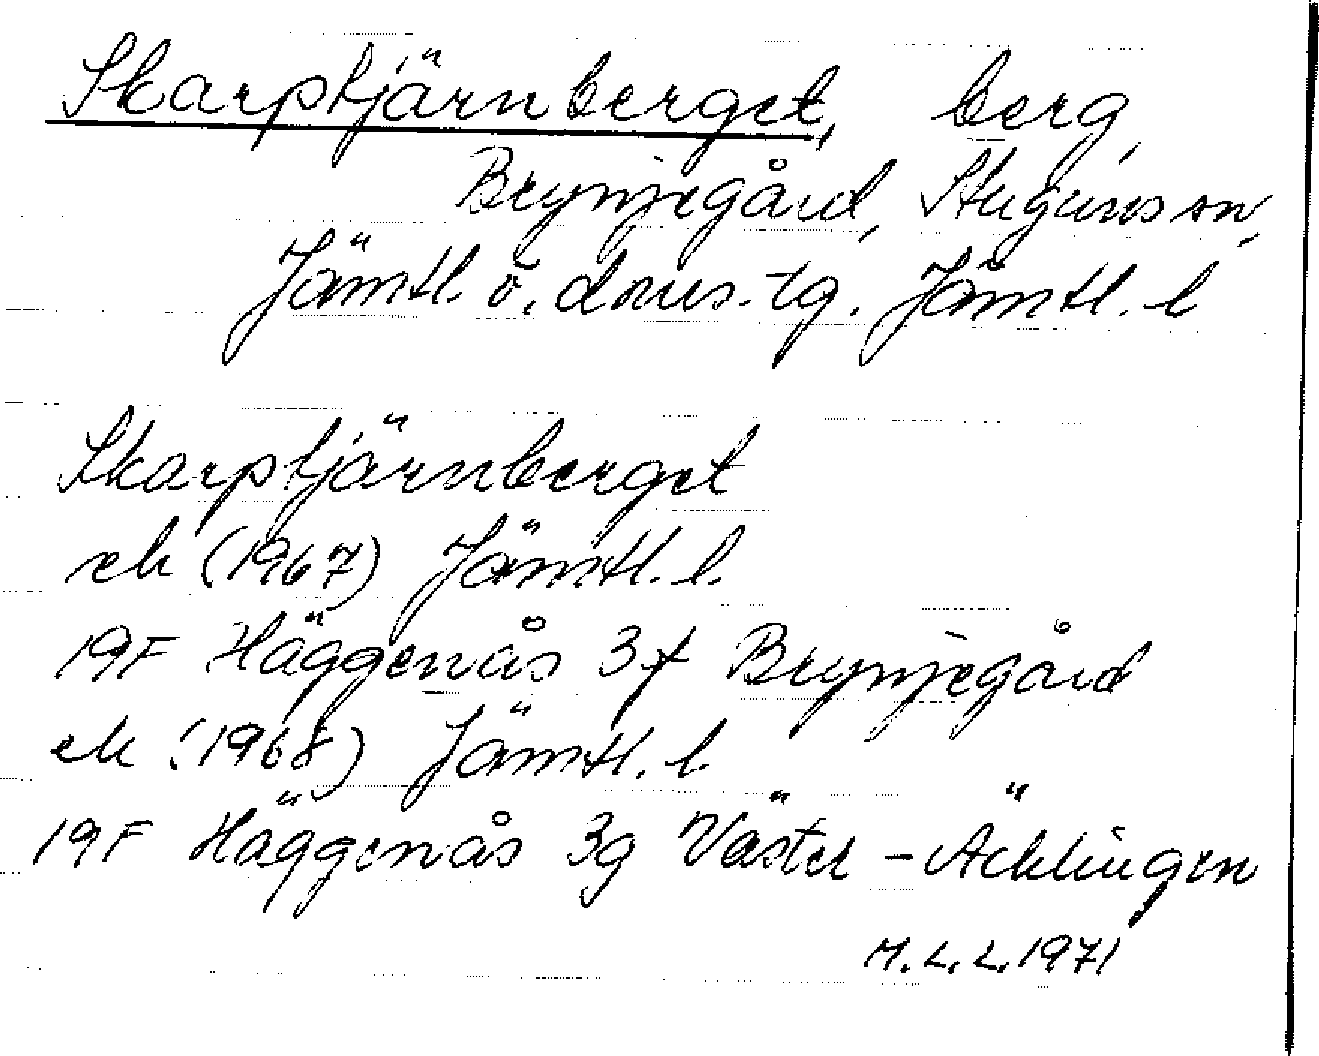 Skarptjärnberget, berg,
Brynjegård, Stuguns sn,
Jämtl. ö. doms.-tg. Jämtl. l
Skarptjärnberget
ek (1967) Jämtl. l.
19F Häggenås 3f Brynjegård
ek (1968) Jämtl. l
19F Häggenås 3g Väster-Äcklingen
M.L.L. 1971